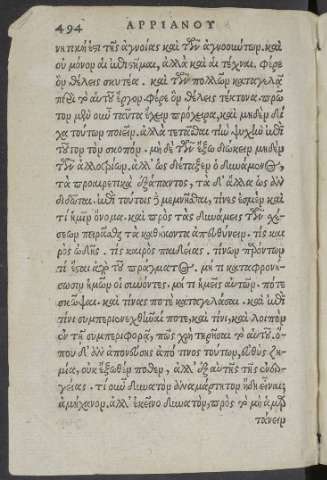 494 ΑΡΡΙΑΝΟΥ
νητική ἐστι τῆς ἀγνοίας καὶ τῶν ἀγνοούντων. καὶ
οὐ μόνον αἱ ἐπιστῆμαι, ἀλλὰ καὶ αἱ τέχναι. φέρε
ὃν θέλεις σκυτέα. καὶ τῶν πολλῶν καταγελᾷ
περὶ τὸ αὑτοῦ ἔργον. φέρε ὃν θέλεις τέκτονα. πρῶ
τον μὲν οὖν ταῦτα ἔχειν πρόχειρα, καὶ μηδὲν δί
χα τούτων ποιεῖν. ἀλλὰ τετάσθαι τὴν ψυχὴν ἐπὶ
τοῦτον τὸν σκοπόν. μηδὲ τῶν ἔξω διώκειν μηδὲν
τῶν ἀλλοτρίων. ἀλλ' ὡς διέταξεν ὁ δυνάμενος,
τὰ προαιρετικὰ ἐξάπαντος, τὰ δ' ἄλλα ὡς ἂν
διδῶται. ἐπὶ τούτοις δὲ μεμνῆσθαι, τίνες ἐσμὲν καὶ
τί ἡμῖν ὄνομα. καὶ πρὸς τὰς δυνάμεις τῶν σχέ-
σεων πειρᾶσθαι τὰ καθήκοντα ἀπευθύνειν. τίς και
ρὸς ᾠδῆς. τίς καιρὸς παιδείας. τίνων παρόντων
τί ἔσται ἀπὸ τοῦ πράγματος. μή τι καταφρονή-
σωσιν ἡμῶν οἱ συνόντες. μή τι ἡμεῖς αὐτῶν. πότε
σκῶψαι. καὶ τίνας ποτὲ καταγελάσαι. καὶ ἐπὶ
τίνι συμπεριενεχθῆναί ποτε, καὶ τίνι, καὶ λοιπὸν
ἐν τῇ συμπεριφορᾷ, πῶς χρὴ τηρῆσαι τὸ αὑτοῦ. ὅ-
που δ' ἂν ἀπονεύσῃς ἀπό τινος τούτων, εὐθὺς ζη-
μία, οὐκ ἔξωθέν ποθεν, ἀλλ' ἐξ αὐτῆς τῆς ἐνερ-
γείας. τί οὖν δυνατὸν ἀναμάρτητον ἤδη εἶναι;
ἀμήχανον. ἀλλ' ἐκεῖνο δυνατὸν, πρὸς τὸ μὴ ἁμαρ
τάνειν